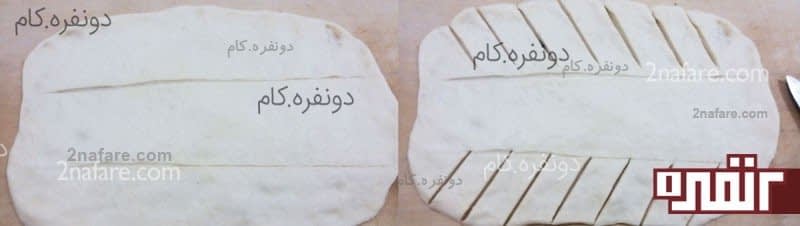 دونفره.کام
دونفره.کام
دونفره.کام
2nafare.com
2nafare.com
دونفره.کام
دونفره.کام
2nafare.com
2nafare.com
دونفره.کام
دونفره.کام